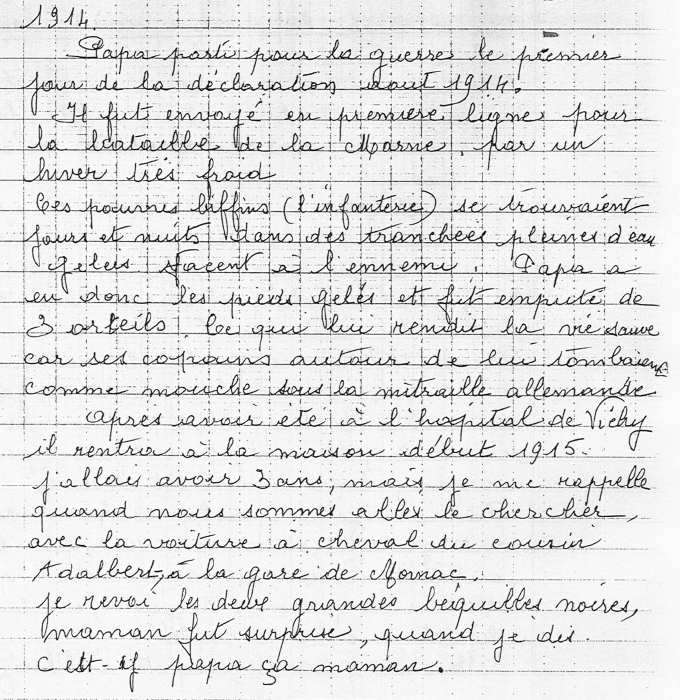 1914
Papa parti pour la guerre le premier
jour de la déclaration aout 1914.
Il fut envoyé en première ligne pour
la bataille de la Marne, par un
hiver très froid
Ces pauvres biffins (l'infanterie) se trouvaient
jours et nuits dans des tranchées pleines d'eau
gelées facent à l'ennemi. Papa a
eu donc les pieds gelés et fut emputé de
3 orteils. Ce qui lui rendit la vie sauve
car ses copains autour de lui tombaient
comme mouche sous la mitraille allemande
après avoir été à l'hopital de Vichy
il rentra à la maison début 1915.
j'allais avoir 3 ans, mais je me rappelle
quand nous sommes allés le chercher,
avec la voiture à cheval du cousin
Adalbert, à la gare de Mornac.
je revoi les deux grandes béquilles noires,
maman fut surprise, quand je dis.
c'est-y papa ça maman.